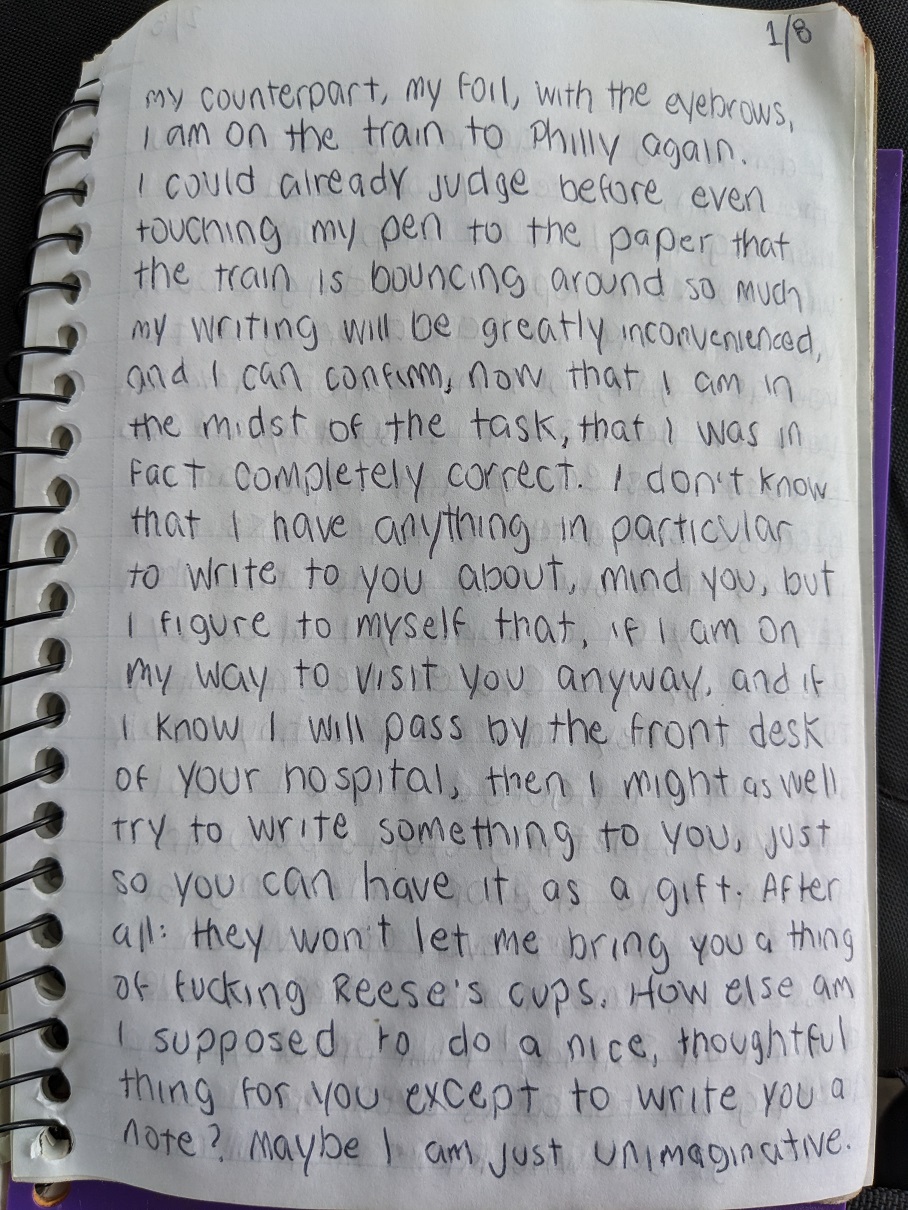 1/8
my counterpart, my foil, with the eyebrows,
I am on the train to Philly again.
I could already judge before even
touching my pen to the paper that
the train is bouncing around so much
my writing will be greatly inconvenienced,
and I can confirm, now that I am in
the midst of the task, that I was in
fact completely correct. I don't know
that I have anything in particular
to write to you about, mind you, but
I figure to myself that, if I am on
my way to visit you anyway, and if
I know I will pass by the front desk
of your hospital, then I might as well
try to write something to you, just
so you can have it as a gift. After
all: they won't let me bring you a thing
of fucking Reese's cups. How else am
I supposed to do a nice, thoughtful
thing for you except to write you a
note? Maybe I am just unimaginative.